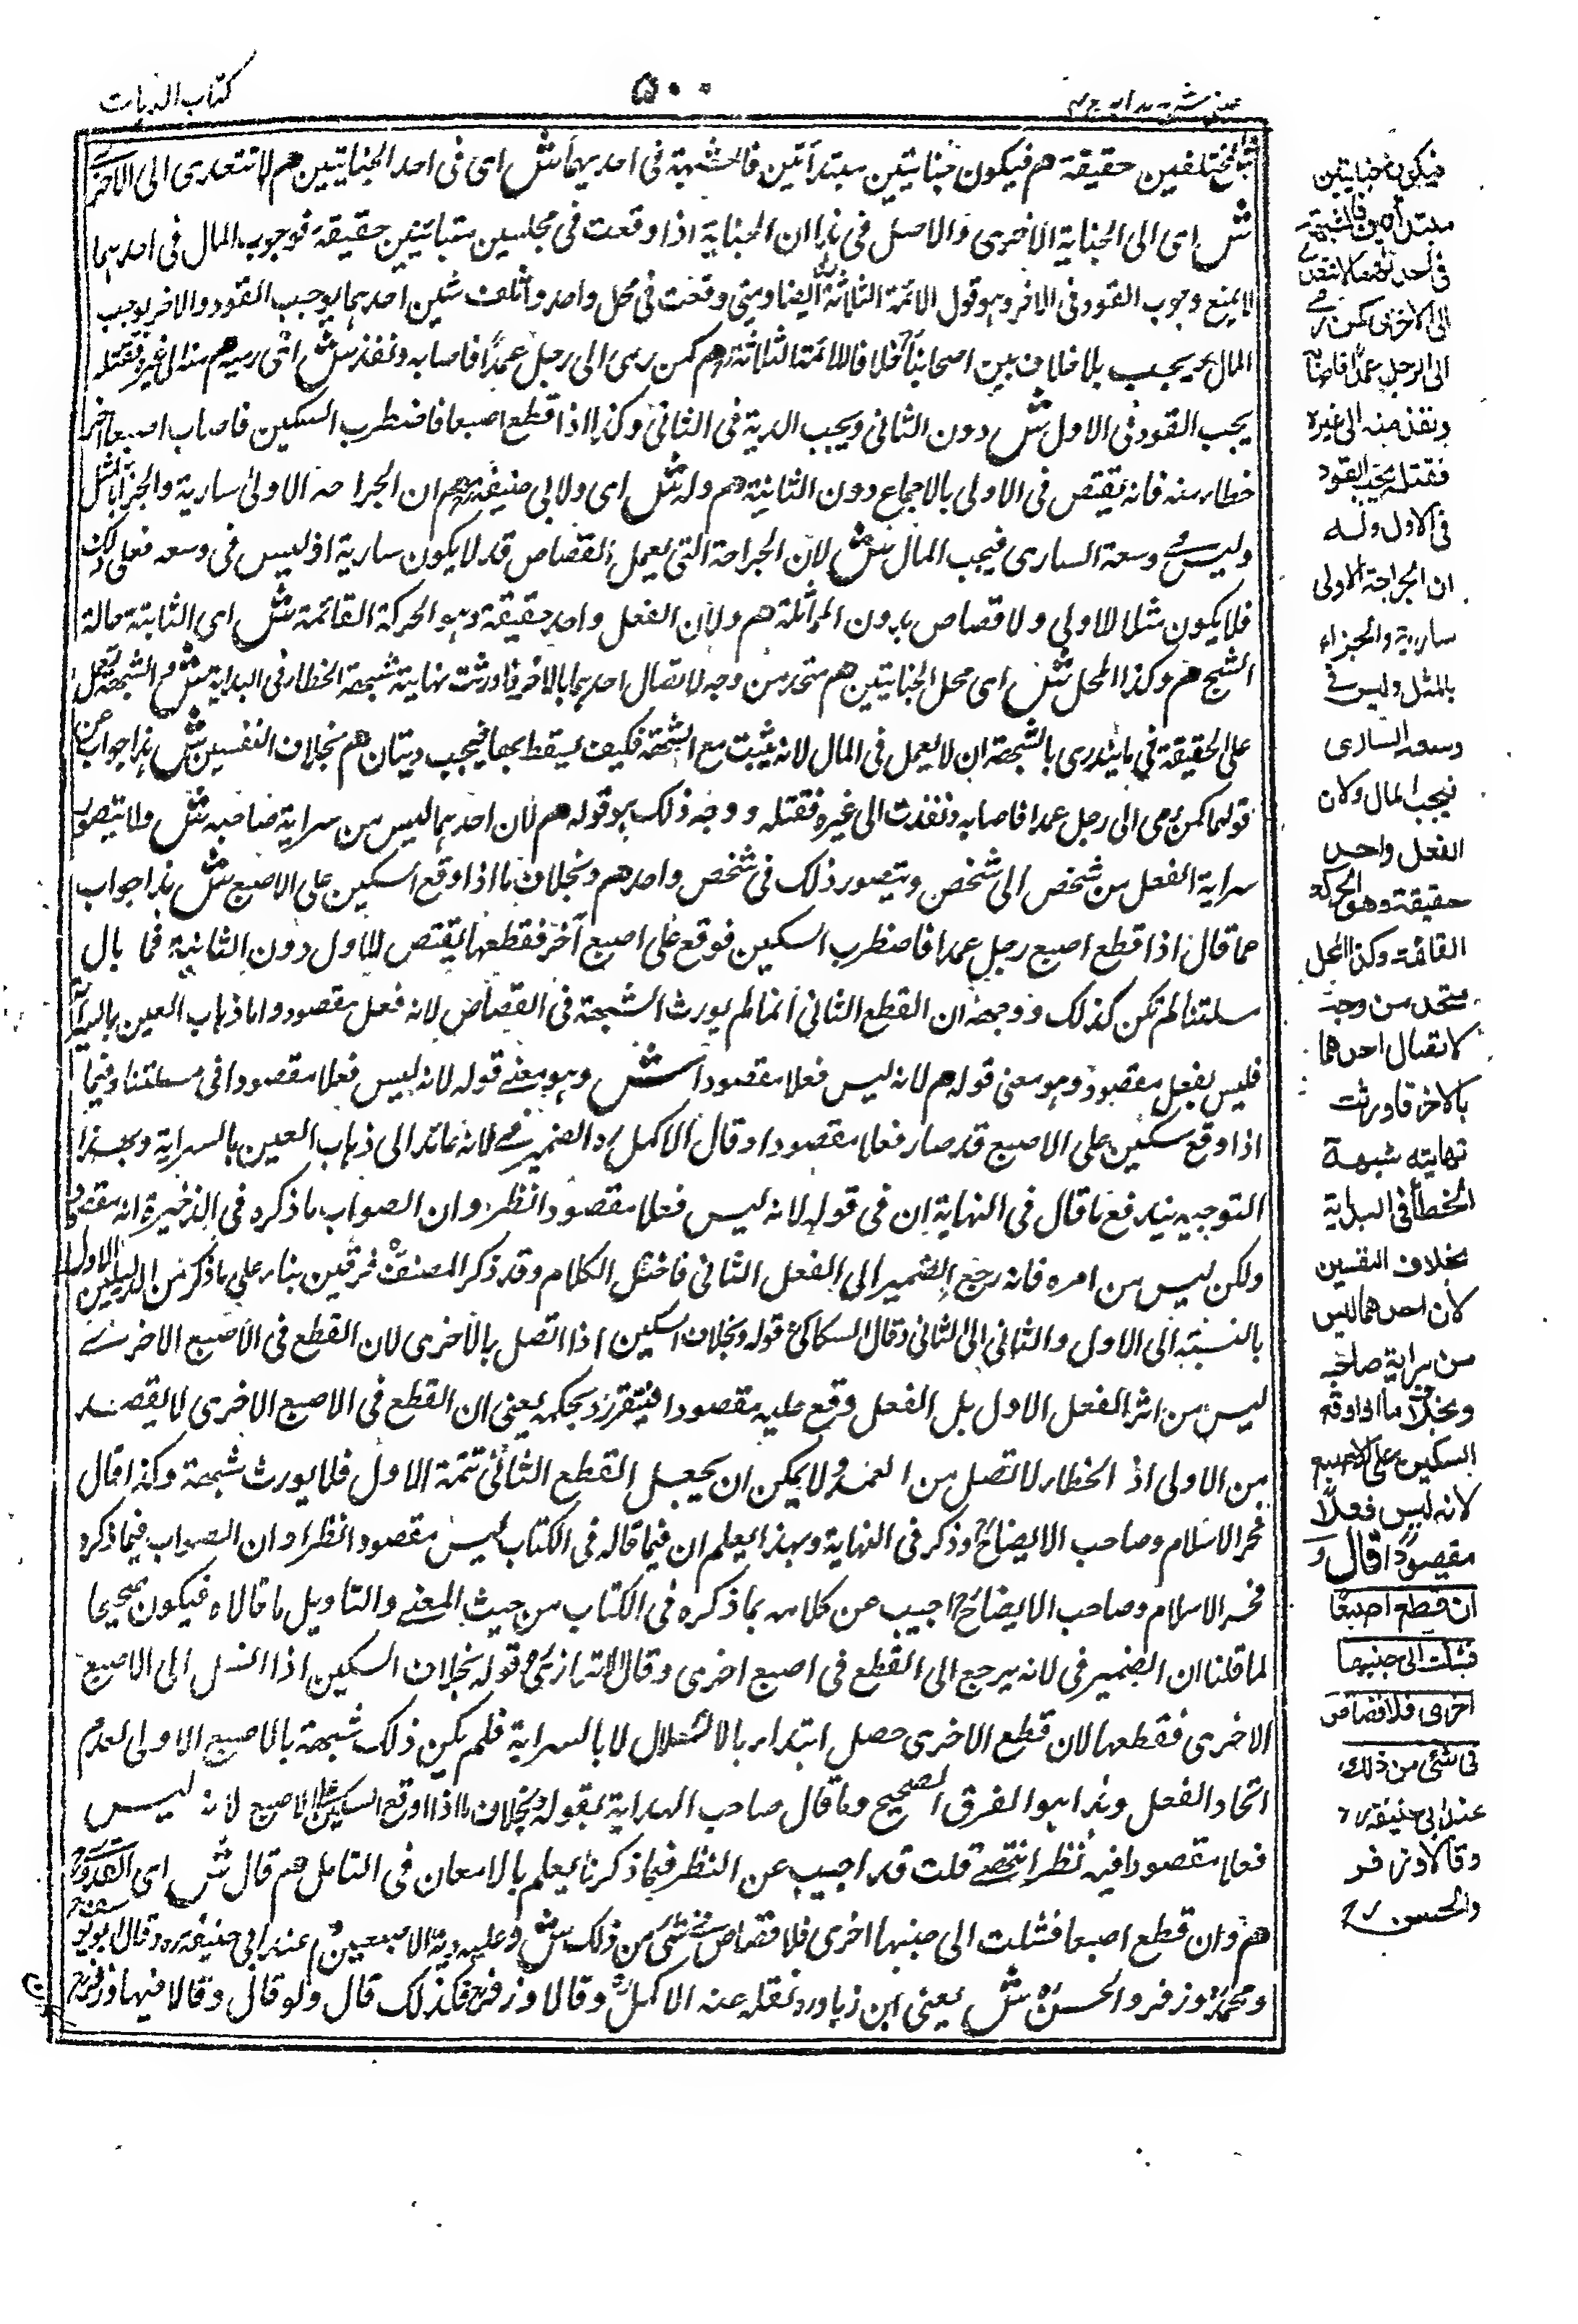 كتاب الديات
۵۰۰
عینی شرح ہدایہ ج ۴
مختلفين حقيقة هم فيكون جنايتين مبتدأتين فالشبهة فى احديهما ش اى فى احد الجنايتين هم لا تتعدى الى الاخرى
ش اى الى الجناية الاخرى والاصل فى هذا ان الجناية اذا وقعت فى مجلسين متباينين حقيقة فوجوب المال فى احدهما
لا يمنع وجوب القود فى الاخر وهو قول الائمة الثلاثة ايضا ومتى وقعت فى محل واحد واتلفت شيئين احدهما يوجب القود والاخر يوجب
المال يجب بلا خلاف بين اصحابنا خلافا للائمة الثلاثة هم كمن رمى الى رجل عمدا فاصابه ونفذ ش اى رميه هم منه الى غيره فقتله
يجب القود فى الاول ش دون الثانى ويجب الدية فى الثانى وكذا اذا قطع اصبعا فاضطرب السكين فاصاب اصبعا اخرى
خطاء منه فانه يقتص فى الاولى بالاجماع دون الثانية هم وله ش اى ولابى حنيفة هم ان الجراحة الاولى سارية والجزاء بالمثل
وليس فى وسعه السارى فيجب المال ش لان الجراحة التى يعمل القصاص قد لا يكون سارية اذ ليس فى وسعه فعل ذلك
فلا يكون مثلا للاولى ولا قصاص بدون المماثلة هم ولان الفعل واحد حقيقة وهو الحركة القائمة ش اى الثابتة حالة
الشج هم وكذا المحل ش اى محل الجنايتين هم متحد من وجه لاتصال احدهما بالاخر فاورثت نهايته شبهة الخطاء فى البداية ش والشبهة تعمل
على الحقيقة فى ما يندرى بالشبهة ان لا يعمل فى المال لانه يثبت مع الشبهة فكيف يسقط بها فيجب ديتان هم بخلاف النفسين ش هذا جواب عن
قولهما كمن رمى الى رجل عمدا فاصابه ونفذت الى غيره فقتله ووجه ذلك هو قوله هم لان احدهما ليس من سراية صاحبه ش ولا يتصور
سراية الفعل من شخص الى شخص ويتصور ذلك فى شخص واحد هم وبخلاف ما اذا وقع السكين على الاصبع ش هذا جواب
عما قال اذا قطع اصبع رجل عمدا فاضطرب السكين فوقع على اصبع آخر فقطعها يقتص للاول دون الثانية فما بال
مسئلتنا لم تكن كذلك ووجهه ان القطع الثانى انما لم يورث الشبهة فى القصاص لانه فعل مقصود واما ذهاب العين بالسراية
فليس بفعل مقصود وهو معنى قوله هم لانه ليس فعلا مقصودا ش وهو معنى قوله لانه ليس فعلا مقصودا فى مسئلتنا وفيما
اذا وقع سكين على الاصبع قد صار فعلا مقصودا وقال الاكمل رد الضمير فى لانه عائد الى ذهاب العين بالسراية وبهذا
التوجيه يندفع ما قال فى النهاية ان فى قوله لانه ليس فعلا مقصودا نظر وان الصواب ما ذكره فى الذخيرة انه مقصود
ولكن ليس من امره فانه رجع الضمير الى الفعل الثانى فاختل الكلام وقد ذكر المصنف فرقين بناء على ما ذكر من الدليلين الاول
بالنسبة الى الاول والثانى الى الثانى وقال السكاكى قوله وبخلاف السكين اذا اتصل بالاخرى لان القطع فى الاصبع الاخرى
ليس من اثر الفعل الاول بل الفعل وقع عليه مقصودا فيتقرر بحكمه يعنى ان القطع فى الاصبع الاخرى لا يقصد
من الاولى اذ الخطاء لا تصل من العمد ولا يمكن ان يجعل القطع الثانى تتمة للاول فلا يورث شبهة وكذا قال
فخر الاسلام وصاحب الايضاح وذكر فى النهاية وبهذا يعلم ان فيما قاله فى الكتاب ليس مقصودا نظرا وان الصواب فيما ذكره
فخر الاسلام وصاحب الايضاح اجيب عن كلامه بما ذكره فى الكتاب من حيث المعنى والتاويل ما قالاه فيكون صحيحا
لما قلنا ان الضمير فى لانه يرجع الى القطع فى اصبع اخرى وقال الاترازى قوله بخلاف السكين اذا انسل الى الاصبع
الاخرى فقطعها لان قطع الاخرى حصل ابتداء بالانسلال لا بالسراية فلم يكن ذلك شبهة بالاصبع الاولى لعدم
اتحاد الفعل وهذا هو الفرق الصحيح وما قال صاحب الهداية بقوله وبخلاف ما اذا وقع السكين على الاصبع لانه ليس
فعلا مقصودا فيه نظر انتهى قلت قد اجيب عن النظر فيما ذكرنا يعلم بالامعان فى التامل هم قال ش اى القدورى
هم وان قطع اصبعا فشلت الى جنبها اخرى فلا قصاص فى شئ من ذلك ش وعليه دية الاصبعين هم عند ابى حنيفة وقال ابو يوسف
ومحمد وزفر والحسن ش يعنى ابن زياد نقله عنه الاكمل وقالا وزفر فكذلك قال ولو قال وقالا فيها وزفر
فيكون جنايتين
مبتدأتين فالشبهة
فى احدهما لا تتعدى
الى الاخرى كمن رمى
الى الرجل عمدا فاصابه
ونفذ منه الى غيره
فقتله يجب القود
فى الاول وله
ان الجراحة الاولى
سارية والجزاء
بالمثل وليس فى
وسعه السارى
فيجب المال ولان
الفعل واحد
حقيقة وهو الحركة
القائمة وكذا المحل
متحد من وجه
لاتصال احدهما
بالاخر فاورثت
نهايته شبهة
الخطأ فى البداية
بخلاف النفسين
لان احدهما ليس
من سراية صاحبه
وبخلاف ما اذا وقع
السكين على الاصبع
لانه ليس فعلا
مقصودا قال و
ان قطع اصبعا
فشلت الى جنبها
اخرى فلا قصاص
فى شئ من ذلك
عند ابى حنيفة
وقالا وزفر
والحسن